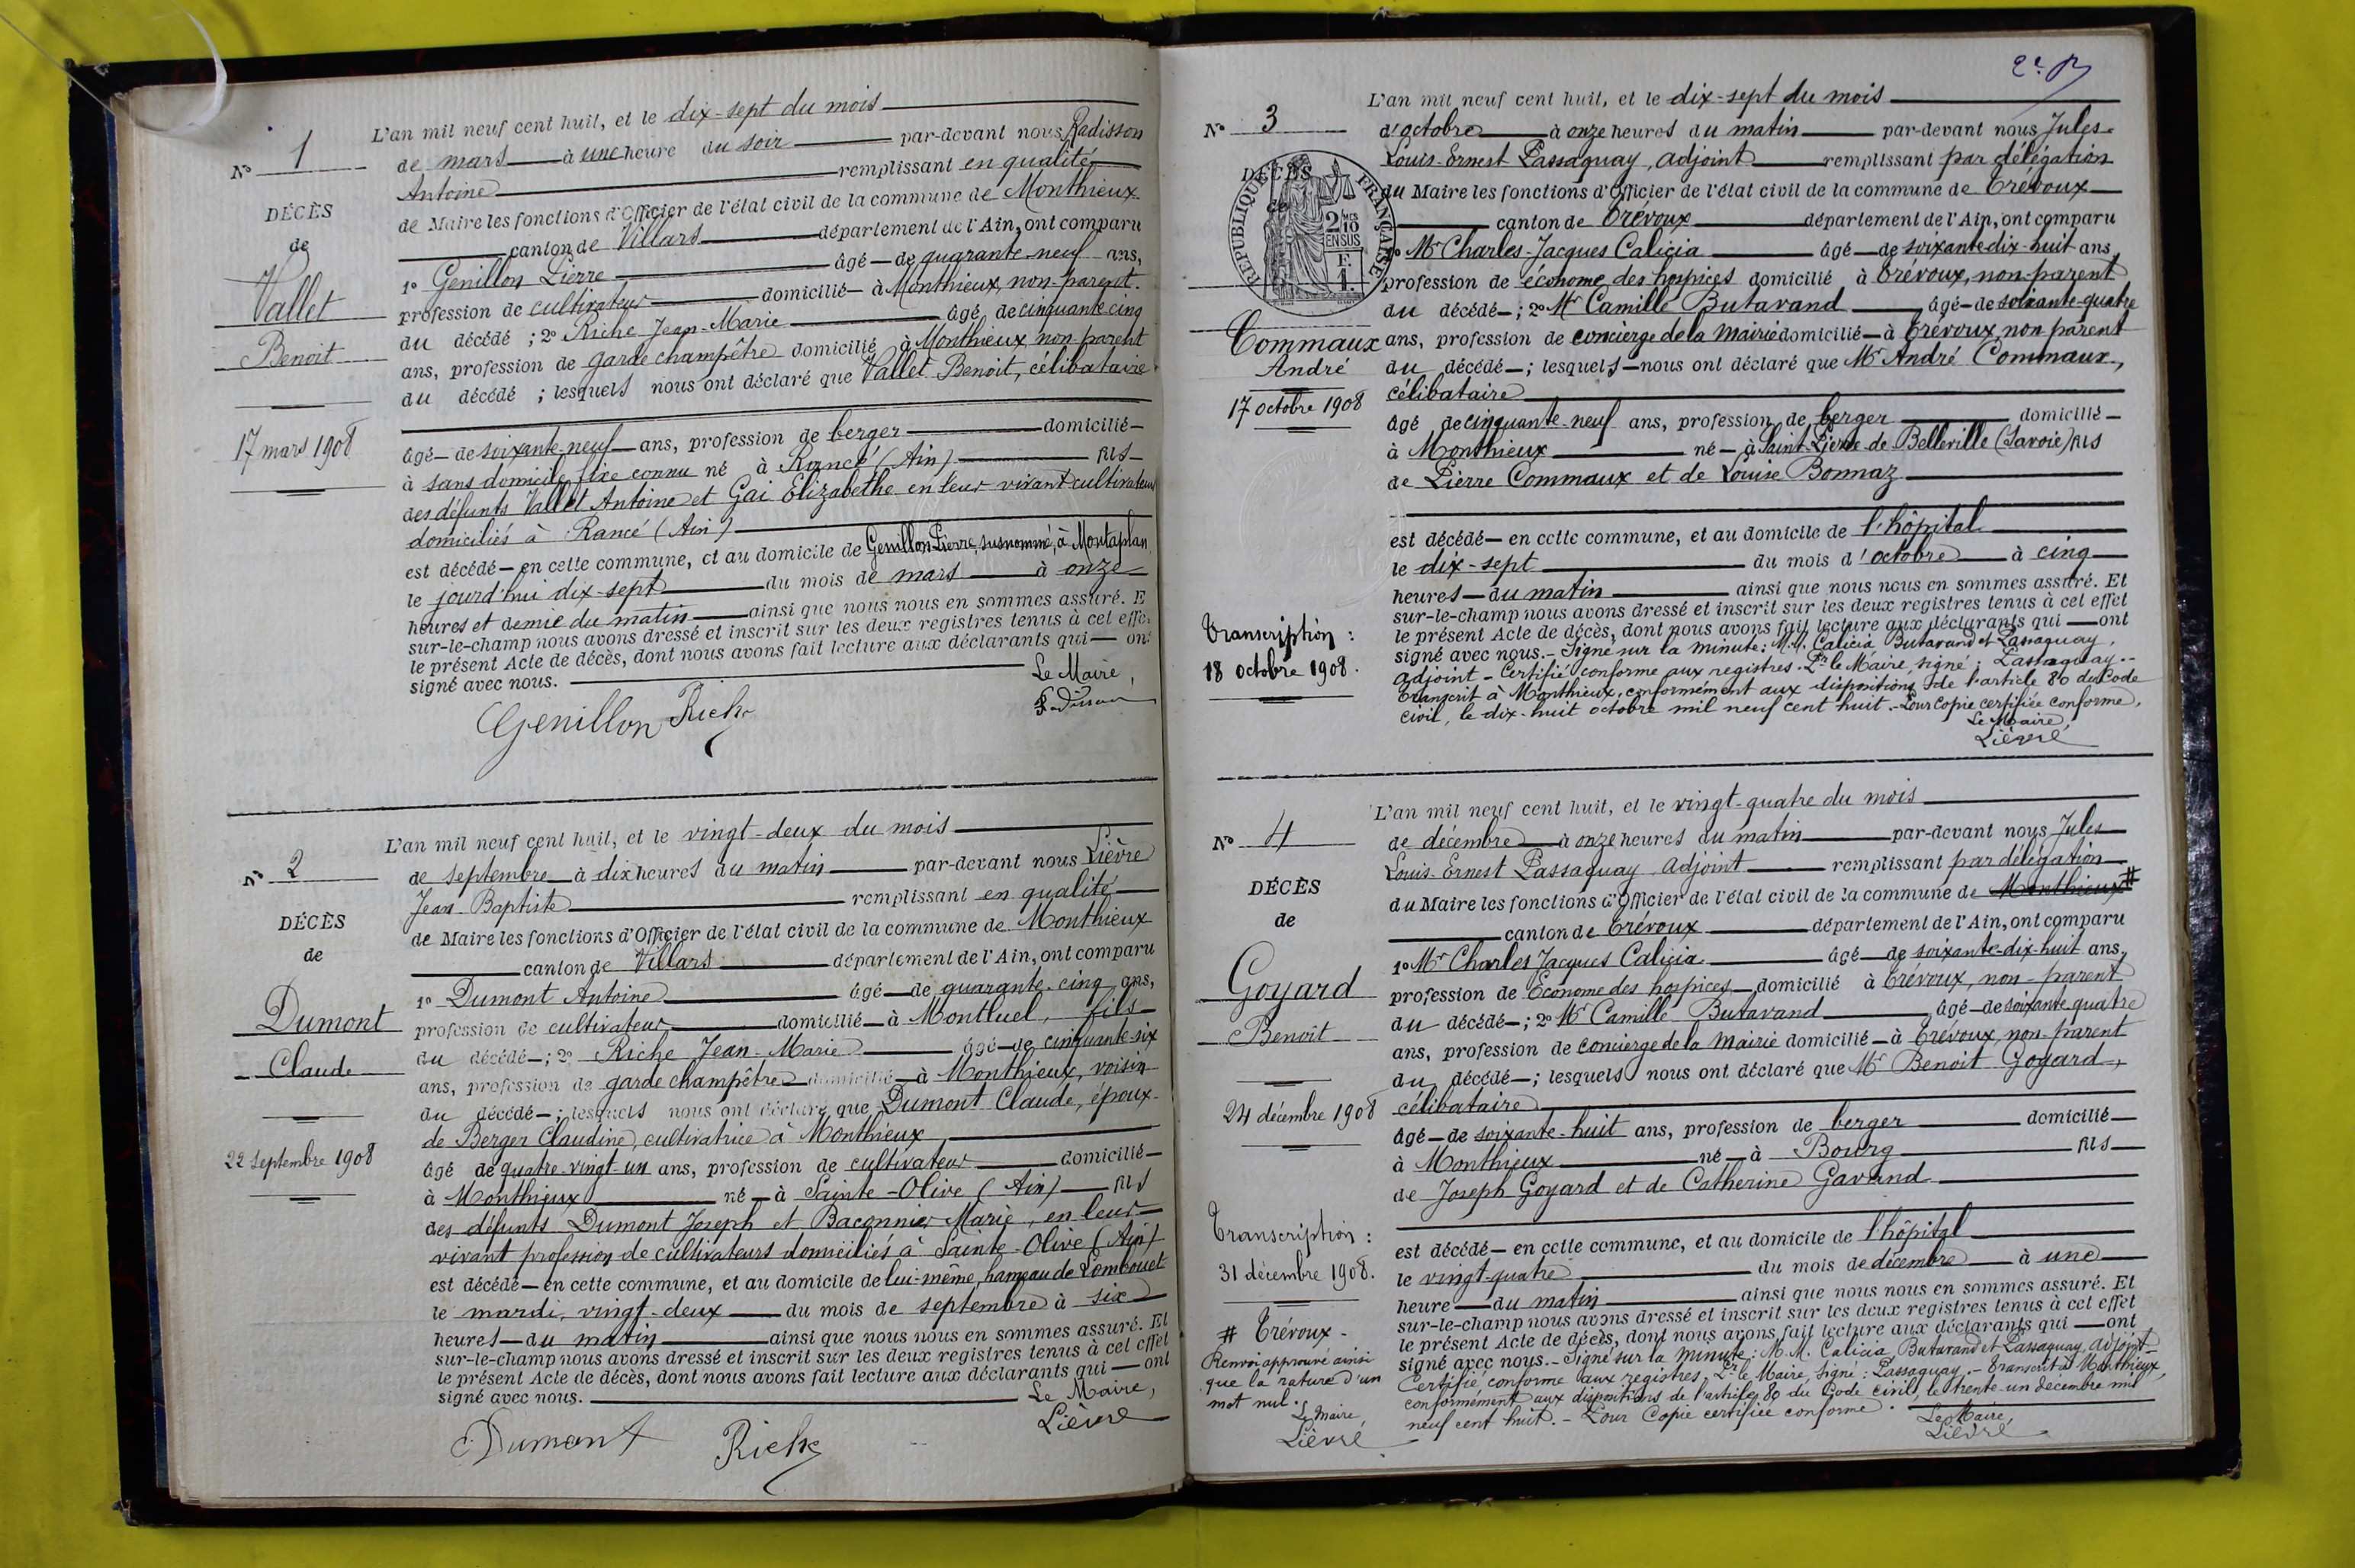 L'an mil neuf cent huit, et le dix-sept du mois
N° 1
de mars à une heure du soir par-devant nous Radisson
Antoine remplissant en qualité
DÉCÈS
de Maire les fonctions d'Officier de l'état civil de la commune de Monthieux
de
canton de Villars département de l'Ain, ont comparu
Vallet
1° Genillon Pierre âgé de quarante-neuf ans,
profession de cultivateur domicilié à Monthieux, non-parent.
Benoit
du décédé ; 2° Riche Jean-Marie âgé de cinquante cinq
ans, profession de garde champêtre domicilié à Monthieux non-parent
du décédé ; lesquels nous ont déclaré que Vallet Benoit, célibataire
17 mars 1908
âgé de soixante neuf ans, profession de berger domicilié
à sans domicile fixe connu né à Rancé (Ain) fils
des défunts Vallet Antoine et Gai Elizabethe en leur vivant cultivateurs
domiciliés à Rancé (Ain)
est décédé en cette commune, et au domicile de Genillon Pierre, susnommé, à Montaplan
le jourd'hui dix-sept du mois de mars à onze
heures et demie du matin ainsi que nous nous en sommes assuré. E
sur-le-champ nous avons dressé et inscrit sur les deux registres tenus à cel effe
le présent Acte de décès, dont nous avons fait lecture aux déclarants qui ont
signé avec nous. Le Maire,
Genillon Riche
L'an mil neuf cent huit, et le vingt-deux du mois
N° 2
de septembre à dix heures du matin par-devant nous Lièvre
Jean-Baptiste remplissant en qualité
DÉCÈS
de Maire les fonctions d'Officier de l'état civil de la commune de Monthieux
de
canton de Villars département de l'Ain, ont comparu
1° Dumont Antoine âgé de quarante-cinq ans,
Dumont
profession de cultivateur domicilié à Montluel, fils
du décédé ; 2° Riche Jean-Marie âgé de cinquante-six
Claude
ans, profession de garde champêtre domicilié à Monthieux, voisin
du décédé ; lesquels nous ont déclaré que Dumont Claude, époux
de Berger Claudine, cultivatrice à Monthieux
22 septembre 1908
âgé de quatre-vingt-un ans, profession de cultivateur domicilié
à Monthieux né à Sainte-Olive (Ain) fils
des défunts Dumont Joseph et Baconnier Marie, en leur
vivant profession de cultivateurs domiciliés à Sainte-Olive (Ain)
est décédé en cette commune, et au domicile de lui-même, hameau de Lombouet
le mardi, vingt-deux du mois de septembre à six
heures du matin ainsi que nous nous en sommes assuré. Et
sur-le-champ nous avons dressé et inscrit sur les deux registres tenus à cel effet
le présent Acte de décès, dont nous avons fait lecture aux déclarants qui ont
signé avec nous. Le Maire,
Dumont Riche Lièvre
L'an mil neuf cent huit, et le dix-sept du mois
N° 3
d'octobre à onze heures du matin par-devant nous Jules
Louis-Ernest Passaquay, adjoint remplissant par délégation
DÉCÈS
de
RÉPUBLIQUE FRANÇAISE
2/10 EN SUS
du Maire les fonctions d'Officier de l'état civil de la commune de Trévoux
canton de Trévoux département de l'Ain, ont comparu
1° Mr Charles-Jacques Calicia âgé de soixante-dix-huit ans,
profession de économe des hospices domicilié à Trévoux, non-parent
du décédé ; 2° Mr Camille Butavand âgé de soixante-quatre
Commaux
ans, profession de concierge de la Mairie domicilié à Trévoux, non parent
André
du décédé ; lesquels nous ont déclaré que Mr André Commaux,
17 octobre 1908
célibataire
âgé de cinquante-neuf ans, profession de berger domicilié
à Monthieux né à Saint-Pierre de Belleville (Savoie) fils
de Pierre Commaux et de Louise Bonnaz
est décédé en cette commune, et au domicile de l'hôpital
le dix-sept du mois d'octobre à cinq
heures du matin ainsi que nous nous en sommes assuré. Et
sur-le-champ nous avons dressé et inscrit sur les deux registres tenus à cel effet
Transcription :
18 octobre 1908.
le présent Acte de décès, dont nous avons fait lecture aux déclarants qui ont
signé avec nous. - Signé sur la minute : M.M. Calicia Butavand et Passaquay,
adjoint - Certifié conforme aux registres. Pr le Maire, signé : Passaquay. -
Transcrit à Monthieux, conformément aux dispositions de l'article 80 du Code
civil, le dix-huit octobre mil neuf cent huit. - Pour copie certifiée conforme,
Le Maire,
Lièvre
L'an mil neuf cent huit, et le vingt-quatre du mois
N° 4
de décembre à onze heures du matin par-devant nous Jules
Louis-Ernest Passaquay adjoint remplissant par délégation
DÉCÈS
du Maire les fonctions d'Officier de l'état civil de la commune de Monthieux #
de
canton de Trévoux département de l'Ain, ont comparu
1° Mr Charles Jacques Calicia âgé de soixante-dix-huit ans,
Goyard
profession de Économe des hospices domicilié à Trévoux, non-parent
du décédé ; 2° Mr Camille Butavand âgé de soixante quatre
Benoit
ans, profession de concierge de la Mairie domicilié à Trévoux, non-parent
du décédé ; lesquels nous ont déclaré que Mr Benoit Goyard,
24 décembre 1908
célibataire
âgé de soixante-huit ans, profession de berger domicilié
à Monthieux né à Bourg fils
de Joseph Goyard et de Catherine Gavand
Transcription :
31 décembre 1908.
est décédé en cette commune, et au domicile de l'hôpital
le vingt-quatre du mois de décembre à une
heure du matin ainsi que nous nous en sommes assuré. Et
sur-le-champ nous avons dressé et inscrit sur les deux registres tenus à cel effet
le présent Acte de décès, dont nous avons fait lecture aux déclarants qui ont
signé avec nous. - Signé sur la minute : M.M. Calicia, Butavand et Passaquay, adjoint -
Certifié conforme aux registres, Pr le Maire, signé : Passaquay. - Transcrit à Monthieux,
conformément aux dispositions de l'article 80 du Code civil, le trente-un décembre mil
neuf cent huit. - Pour Copie certifiée conforme.
Le Maire,
Lièvre
# Trévoux -
Renvoi approuvé ainsi
que la rature d'un
mot nul.
Le Maire,
Lièvre